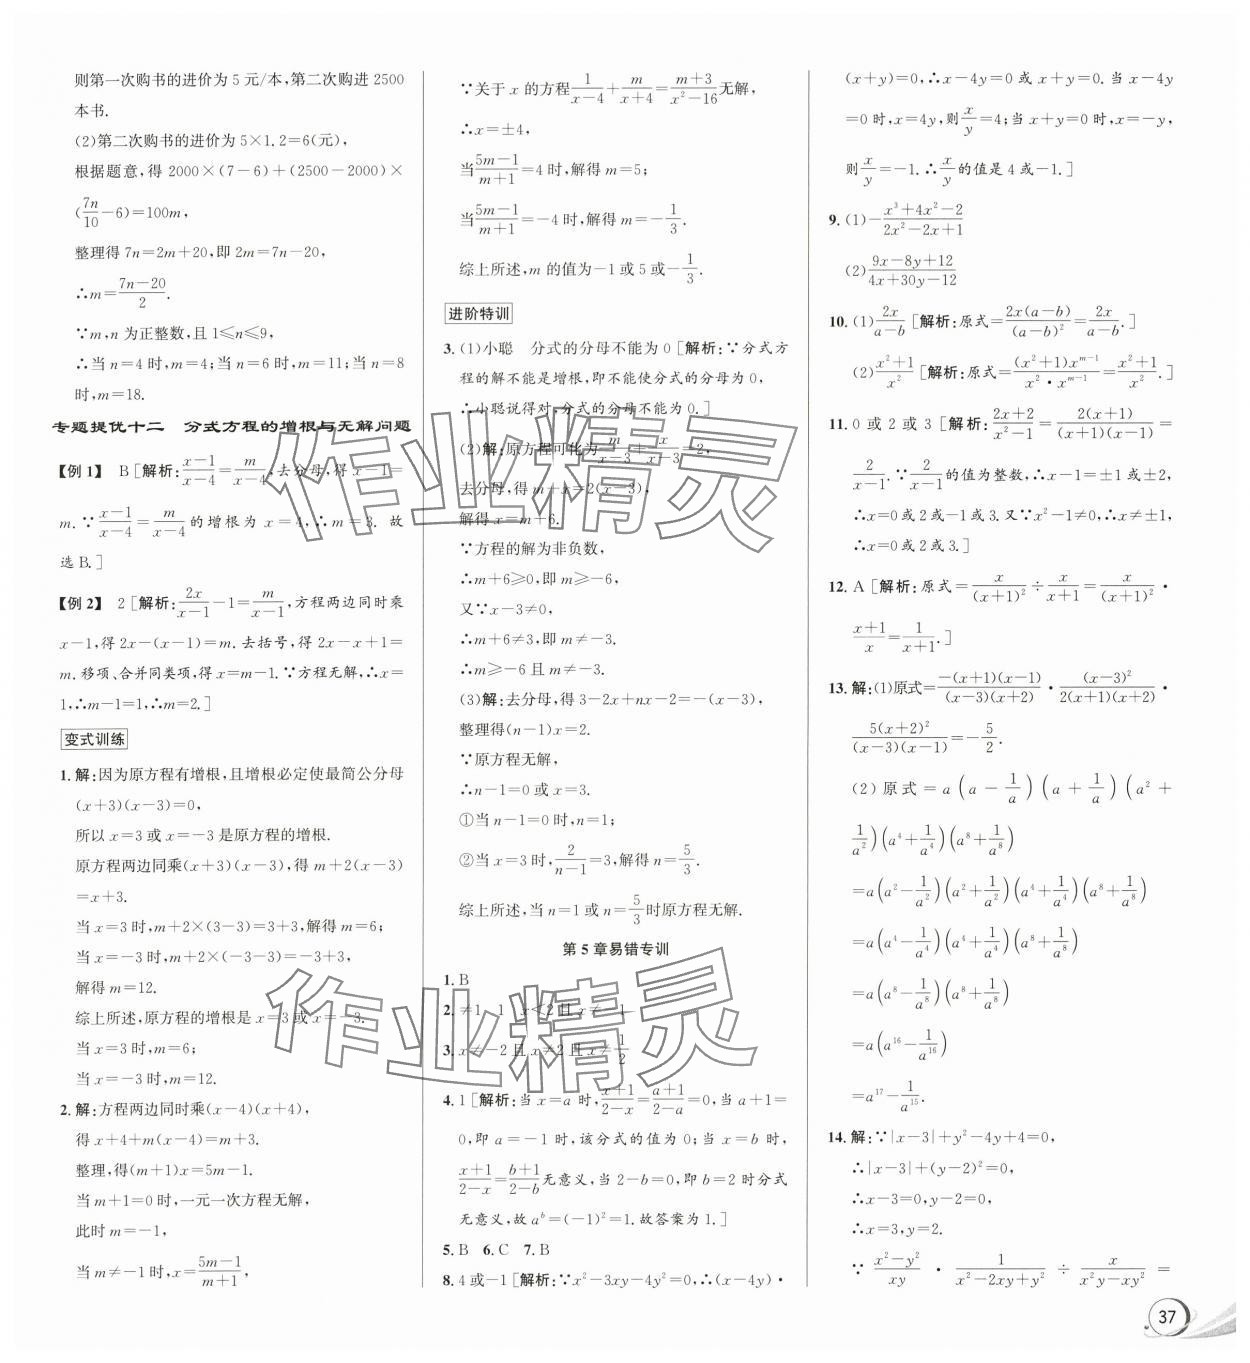 则第一次购书的进价为 5 元/本,第二次购进 2500
本书.
(2)第二次购书的进价为 5×1.2=6(元),
根据题意,得 2000×(7-6)+(2500-2000)×
(7n/10-6)=100m,
整理得 7n=2m+20,即 2m=7n-20,
∴m=(7n-20)/2.
∵m,n 为正整数,且 1≤n≤9,
∴当 n=4 时,m=4;当 n=6 时,m=11;当 n=8
时,m=18.
专题提优十二 分式方程的增根与无解问题
【例 1】 B [解析:(x-1)/(x-4)=m/(x-4),去分母,得 x-1=
m.∵(x-1)/(x-4)=m/(x-4)的增根为 x=4,∴m=3. 故
选 B.]
【例 2】 2 [解析:2x/(x-1)-1=m/(x-1),方程两边同时乘
x-1,得 2x-(x-1)=m.去括号,得 2x-x+1=
m.移项、合并同类项,得 x=m-1.∵方程无解,∴x=
1,∴m-1=1,∴m=2.]
变式训练
1.解:因为原方程有增根,且增根必定使最简公分母
(x+3)(x-3)=0,
所以 x=3 或 x=-3 是原方程的增根.
原方程两边同乘(x+3)(x-3),得 m+2(x-3)
=x+3.
当 x=3 时,m+2×(3-3)=3+3,解得 m=6;
当 x=-3 时,m+2×(-3-3)=-3+3,
解得 m=12.
综上所述,原方程的增根是 x=3 或 x=-3.
当 x=3 时,m=6;
当 x=-3 时,m=12.
2.解:方程两边同时乘(x-4)(x+4),
得 x+4+m(x-4)=m+3.
整理,得(m+1)x=5m-1.
当 m+1=0 时,一元一次方程无解,
此时 m=-1,
当 m≠-1 时,x=(5m-1)/(m+1),
∵关于 x 的方程1/(x-4)+m/(x+4)=(m+3)/(x²-16)无解,
∴x=±4,
当(5m-1)/(m+1)=4 时,解得 m=5;
当(5m-1)/(m+1)=-4 时,解得 m=-1/3.
综上所述,m 的值为-1 或 5 或-1/3.
进阶特训
3.(1)小聪 分式的分母不能为 0 [解析:∵分式方
程的解不能是增根,即不能使分式的分母为 0,
∴小聪说得对,分式的分母不能为 0.]
(2)解:原方程可化为m/(x-3)+x/(x-3)=2,
去分母,得 m+x=2(x-3),
解得 x=m+6.
∵方程的解为非负数,
∴m+6≥0,即 m≥-6,
又∵x-3≠0,
∴m+6≠3,即 m≠-3.
∴m≥-6 且 m≠-3.
(3)解:去分母,得 3-2x+nx-2=-(x-3),
整理得(n-1)x=2.
∵原方程无解,
∴n-1=0 或 x=3.
①当 n-1=0 时,n=1;
②当 x=3 时,2/(n-1)=3,解得 n=5/3.
综上所述,当 n=1 或 n=5/3时原方程无解.
第 5 章易错专训
1. B
2. ≠1 -1 x<2 且 x≠-1
3. x≠-2 且 x≠2 且 x≠-1/2
4. 1 [解析:当 x=a 时,(x+1)/(2-x)=(a+1)/(2-a)=0,当 a+1=
0,即 a=-1 时,该分式的值为 0;当 x=b 时,
(x+1)/(2-x)=(b+1)/(2-b)无意义,当 2-b=0,即 b=2 时分式
无意义,故 aᵇ=(-1)²=1.故答案为 1.]
5. B 6. C 7. B
8. 4 或-1 [解析:∵x²-3xy-4y²=0,∴(x-4y)·
(x+y)=0,∴x-4y=0 或 x+y=0. 当 x-4y
=0 时,x=4y,则x/y=4;当 x+y=0 时,x=-y,
则x/y=-1.∴x/y的值是 4 或-1.]
9. (1)-(x³+4x²-2)/(2x²-2x+1)
(2)(9x-8y+12)/(4x+30y-12)
10. (1)2x/(a-b) [解析:原式=2x(a-b)/(a-b)²=2x/(a-b).]
(2)(x²+1)/x² [解析:原式=(x²+1)xᵐ⁻¹/(x²·xᵐ⁻¹)=(x²+1)/x².]
11. 0 或 2 或 3 [解析:(2x+2)/(x²-1)=2(x+1)/((x+1)(x-1))=
2/(x-1).∵2/(x-1)的值为整数,∴x-1=±1 或±2,
∴x=0 或 2 或-1 或 3.又∵x²-1≠0,∴x≠±1,
∴x=0 或 2 或 3.]
12. A [解析:原式=x/(x+1)²÷x/(x+1)=x/(x+1)²·
(x+1)/x=1/(x+1).]
13. 解:(1)原式=-(x+1)(x-1)/((x-3)(x+2))·(x-3)²/(2(x+1)(x+2))·
5(x+2)²/((x-3)(x-1))=-5/2.
(2)原式=a(a-1/a)(a+1/a)(a²+
1/a²)(a⁴+1/a⁴)(a⁸+1/a⁸)
=a(a²-1/a²)(a²+1/a²)(a⁴+1/a⁴)(a⁸+1/a⁸)
=a(a⁴-1/a⁴)(a⁴+1/a⁴)(a⁸+1/a⁸)
=a(a⁸-1/a⁸)(a⁸+1/a⁸)
=a(a¹⁶-1/a¹⁶)
=a¹⁷-1/a¹⁵.
14. 解:∵|x-3|+y²-4y+4=0,
∴|x-3|+(y-2)²=0,
∴x-3=0,y-2=0,
∴x=3,y=2.
∵(x²-y²)/xy·1/(x²-2xy+y²)÷x/(x²y-xy²)=
37
作业精灵
作业精灵